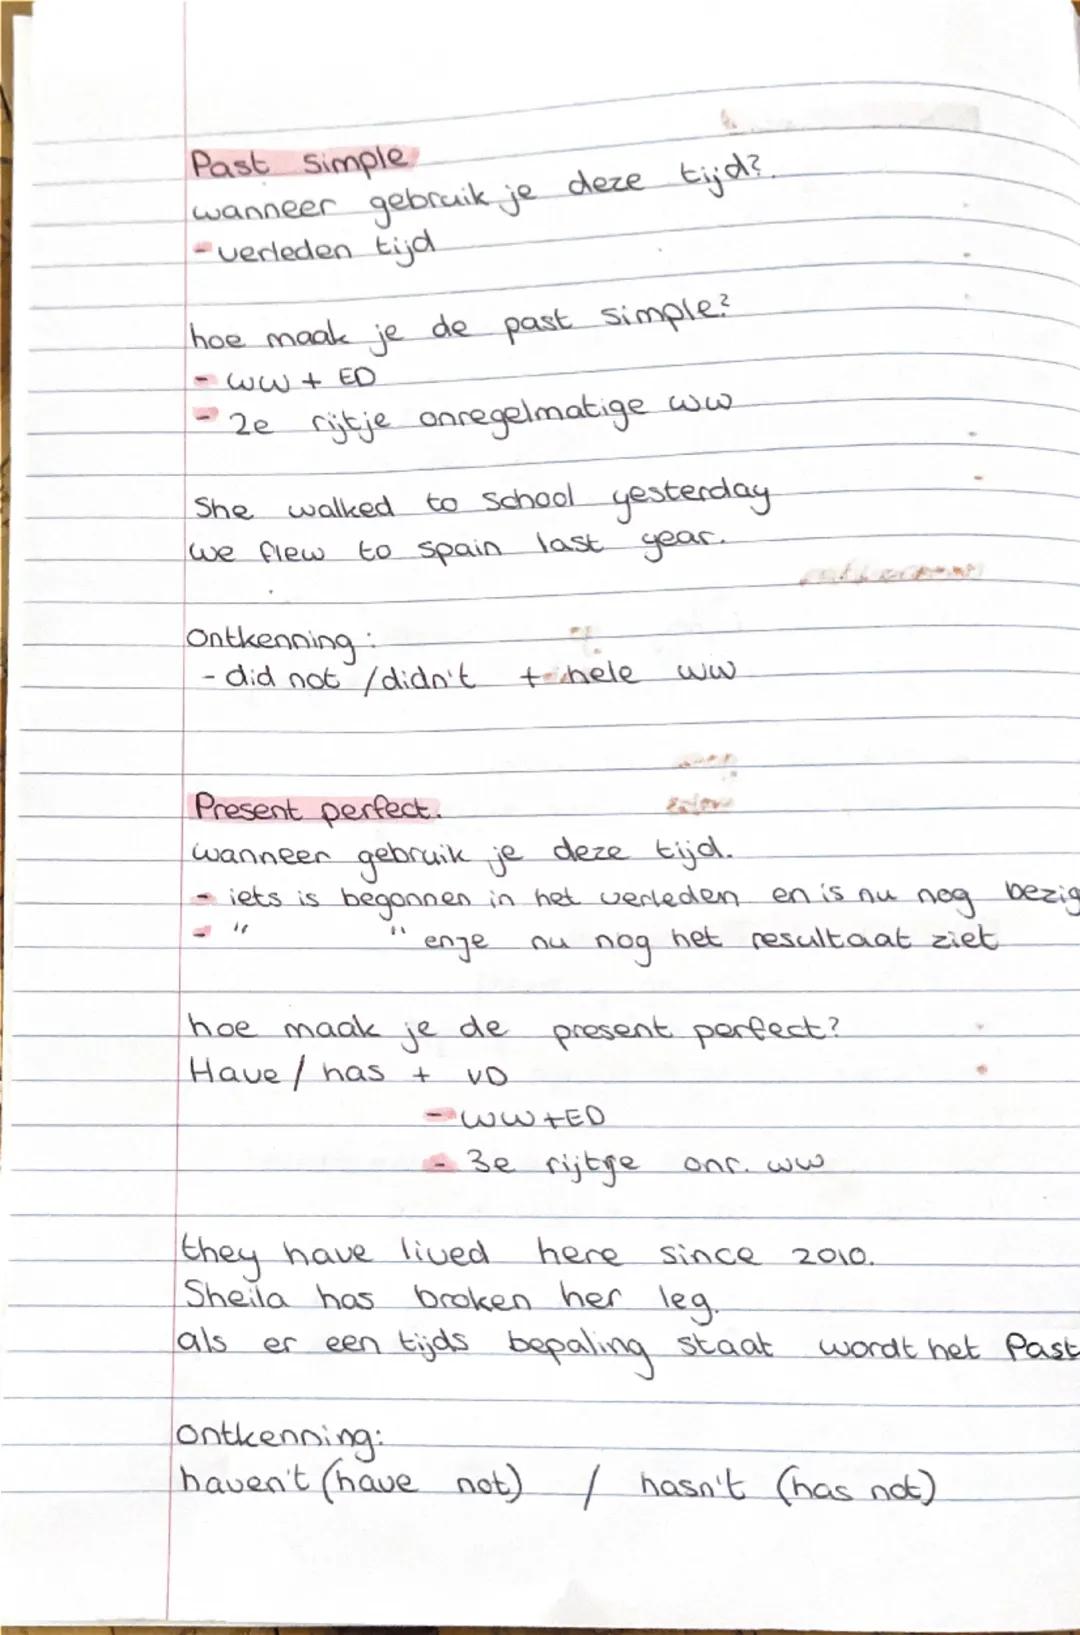 Past simple
wanneer gebruik je deze tijd?
- verleden tijd
hoe maak je de past simple?
- ww + ED
- 2e rijtje onregelmatige ww
She walked to school yesterday
we flew to spain last year.
Ontkenning:
- did not / didn't + hele ww
Present perfect.
wanneer gebruik je deze tijd.
- iets is begonnen in het verleden en is nu nog bezig
- " " en je nu nog het resultaat ziet
hoe maak je de present perfect?
Have / has + VD
- ww + ED
- 3e rijtje onr. ww
they have lived here since 2010.
Sheila has broken her leg.
als er een tijds bepaling staat wordt het Past
ontkenning:
haven't (have not) / hasn't (has not)